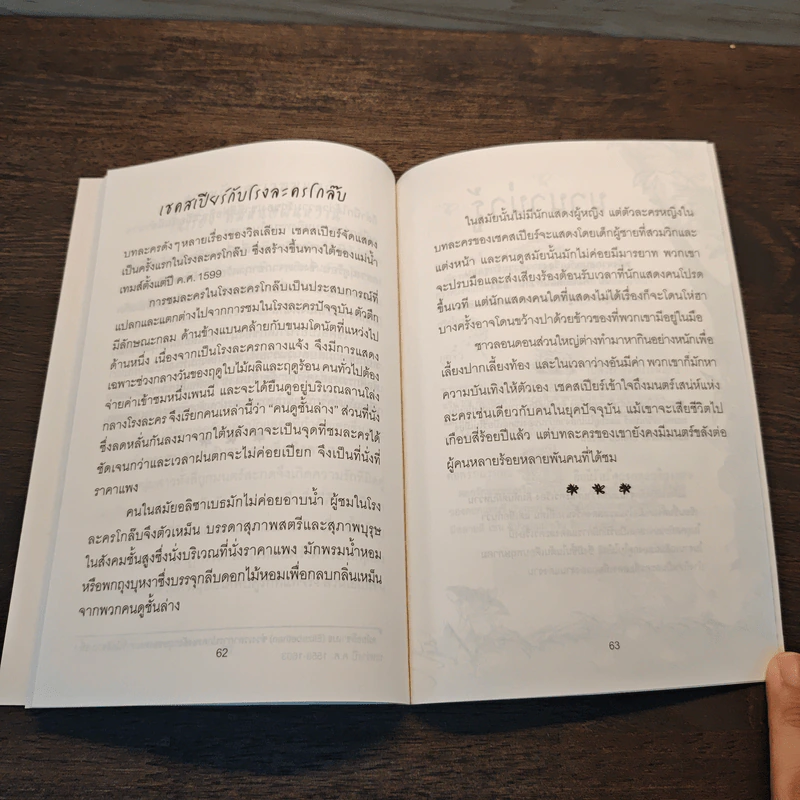 เชคสเปียร์กับโรงละครโกล๊บ
บทละครดังๆ หลายเรื่องของวิลเลียม เชคสเปียร์จัดแสดง
เป็นครั้งแรกในโรงละครโกล๊บ ซึ่งสร้างขึ้นทางใต้ของแม่น้ำ
เทมส์ตั้งแต่ปี ค.ศ. 1599
การชมละครในโรงละครโกล๊บเป็นประสบการณ์ที่
แปลกและแตกต่างไปจากการชมในโรงละครปัจจุบัน ตัวตึก
มีลักษณะกลม ด้านข้างแบนคล้ายกับขนมโดนัตที่แหว่งไป
ด้านหนึ่ง เนื่องจากเป็นโรงละครกลางแจ้ง จึงมีการแสดง
เฉพาะช่วงกลางวันของฤดูใบไม้ผลิและฤดูร้อน คนทั่วไปต้อง
จ่ายค่าเข้าชมหนึ่งเพนนี และจะได้ยืนดูอยู่บริเวณลานโล่ง
กลางโรงละคร จึงเรียกคนเหล่านี้ว่า “คนดูชั้นล่าง” ส่วนที่นั่ง
ซึ่งลดหลั่นกันลงมาจากใต้หลังคาจะเป็นจุดที่ชมละครได้
ชัดเจนกว่าและเวลาฝนตกจะไม่ค่อยเปียก จึงเป็นที่นั่งที่
ราคาแพง
คนในสมัยอลิซาเบธมักไม่ค่อยอาบน้ำ ผู้ชมในโรง
ละครโกล๊บจึงตัวเหม็น บรรดาสุภาพสตรีและสุภาพบุรุษ
ในสังคมชั้นสูงซึ่งนั่งบริเวณที่นั่งราคาแพง มักพรมน้ำหอม
หรือพกถุงบุหงาซึ่งบรรจุกลีบดอกไม้หอมเพื่อกลบกลิ่นเหม็น
จากพวกคนดูชั้นล่าง
62
ในสมัยนั้นไม่มีนักแสดงผู้หญิง แต่ตัวละครหญิงใน
บทละครของเชคสเปียร์จะแสดงโดยเด็กผู้ชายที่สวมวิกและ
แต่งหน้า และคนดูสมัยนั้นมักไม่ค่อยมีมารยาท พวกเขา
จะปรบมือและส่งเสียงร้องต้อนรับเวลาที่นักแสดงคนโปรด
ขึ้นเวที แต่นักแสดงคนใดที่แสดงไม่ได้เรื่องก็จะโดนโห่ฮา
บางครั้งอาจโดนขว้างปาด้วยข้าวของที่พวกเขามีอยู่ในมือ
ชาวลอนดอนส่วนใหญ่ต่างทำมาหากินอย่างหนักเพื่อ
เลี้ยงปากเลี้ยงท้อง และในเวลาว่างอันมีค่า พวกเขาก็มักหา
ความบันเทิงให้ตัวเอง เชคสเปียร์เข้าใจถึงมนตร์เสน่ห์แห่ง
ละครเช่นเดียวกับคนในยุคปัจจุบัน แม้เขาจะเสียชีวิตไป
เกือบสี่ร้อยปีแล้ว แต่บทละครของเขายังคงมีมนตร์ขลังต่อ
ผู้คนหลายร้อยหลายพันคนที่ได้ชม
* * *
63